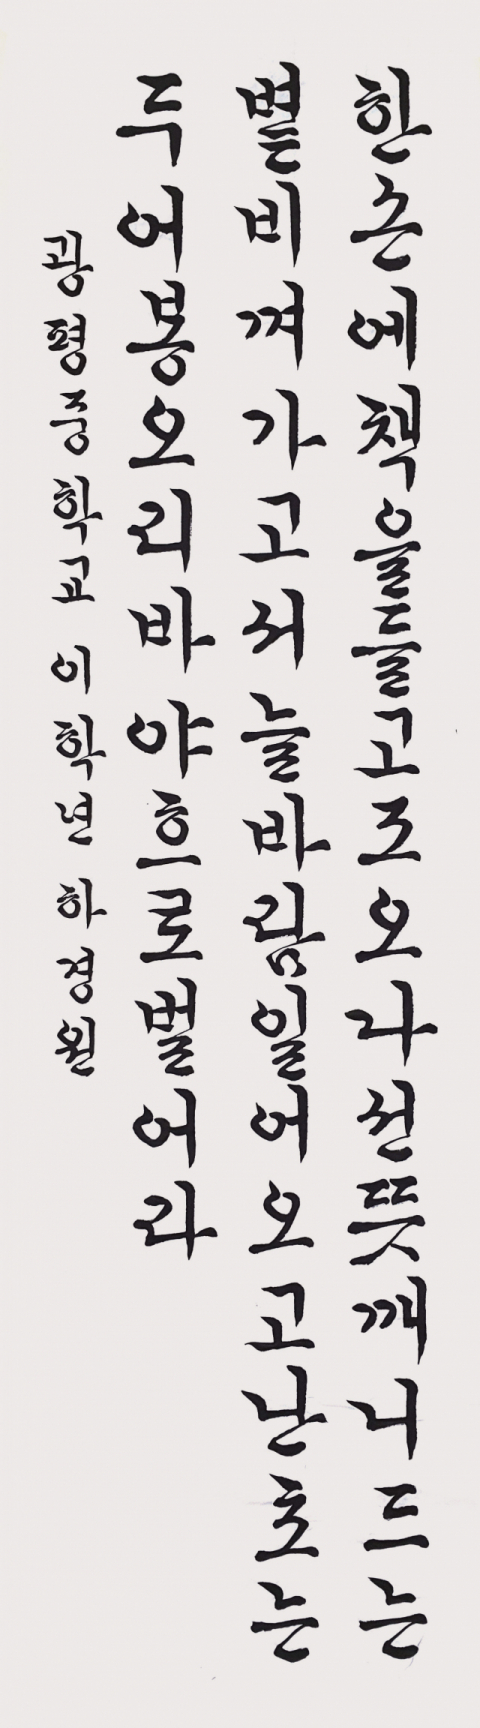 한손에책을들고조오다선뜻깨니드는
볕비껴가고서늘바람일어오고난초는
두어봉오리바야흐로벌어라
광평중학교 이학년 하경원